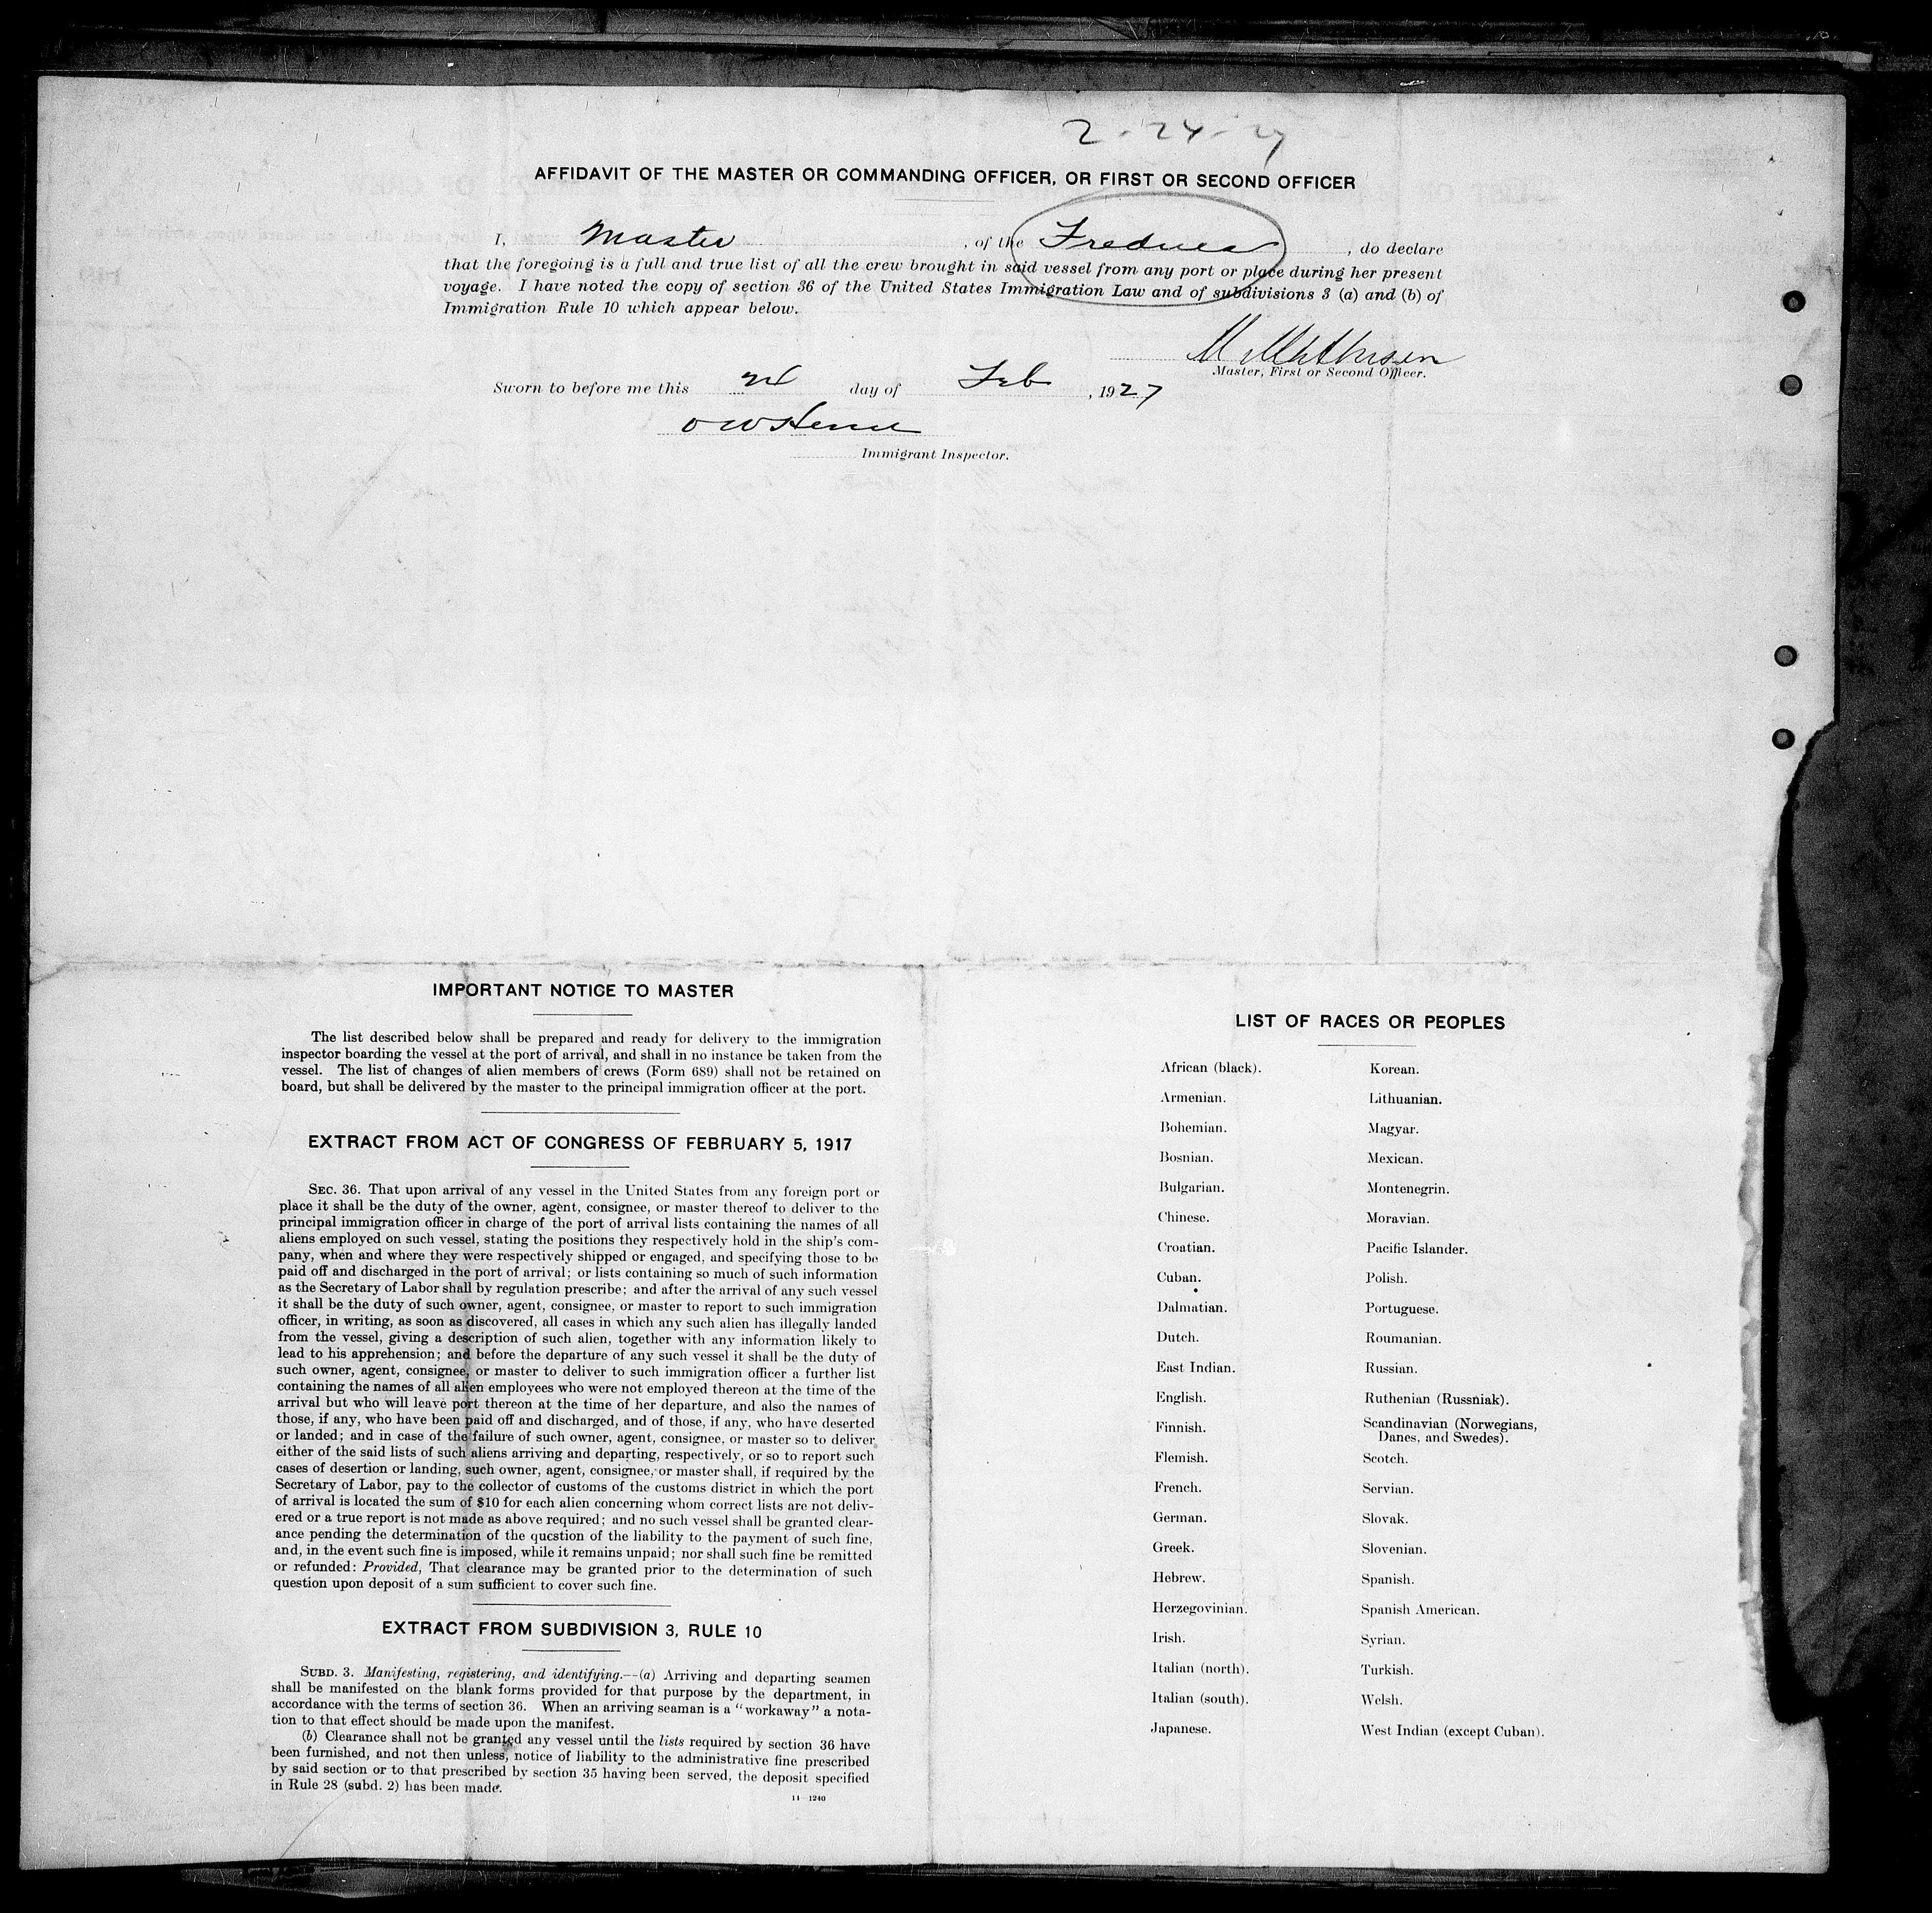 2-24-27
AFFIDAVIT OF THE MASTER OR COMMANDING OFFICER, OR FIRST OR SECOND OFFICER
I, Master, of the, do declare
that the foregoing is a full and true list of all the crew brought in said vessel from any port or place during her present
voyage. I have noted the copy of section 36 of the United States Immigration Law and of subdivisions 3 (a) and (b) of
Immigration Rule 10 which appear below.
Master, First or Second Officer.
Sworn to before me this day of Feb, 1927
Immigrant Inspector.
IMPORTANT NOTICE TO MASTER
The list described below shall be prepared and ready for delivery to the immigration
inspector boarding the vessel at the port of arrival, and shall in no instance be taken from the
vessel. The list of changes of alien members of crews (Form 689) shall not be retained on
board, but shall be delivered by the master to the principal immigration officer at the port.
EXTRACT FROM ACT OF CONGRESS OF FEBRUARY 5, 1917
SEC. 36. That upon arrival of any vessel in the United States from any foreign port or
place it shall be the duty of the owner, agent, consignee, or master thereof to deliver to the
principal immigration officer in charge of the port of arrival lists containing the names of all
aliens employed on such vessel, stating the positions they respectively hold in the ship's com-
pany, when and where they were respectively shipped or engaged, and specifying those to be
paid off and discharged in the port of arrival; or lists containing so much of such information
as the Secretary of Labor shall by regulation prescribe; and after the arrival of any such vessel
it shall be the duty of such owner, agent, consignee, or master to report to such immigration
officer, in writing, as soon as discovered, all cases in which any such alien has illegally landed
from the vessel, giving a description of such alien, together with any information likely to
lead to his apprehension; and before the departure of any such vessel it shall be the duty of
such owner, agent, consignee, or master to deliver to such immigration officer a further list
containing the names of all alien employees who were not employed thereon at the time of the
arrival but who will leave port thereon at the time of her departure, and also the names of
those, if any, who have been paid off and discharged, and of those, if any, who have deserted
or landed; and in case of the failure of such owner, agent, consignee, or master so to deliver
either of the said lists of such aliens arriving and departing, respectively, or so to report such
cases of desertion or landing, such owner, agent, consignee, or master shall, if required by the
Secretary of Labor, pay to the collector of customs of the customs district in which the port
of arrival is located the sum of $10 for each alien concerning whom correct lists are not deliv-
ered or a true report is not made as above required; and no such vessel shall be granted clear-
ance pending the determination of the question of the liability to the payment of such fine,
and, in the event such fine is imposed, while it remains unpaid; nor shall such fine be remitted
or refunded: Provided, That clearance may be granted prior to the determination of such
question upon deposit of a sum sufficient to cover such fine.
EXTRACT FROM SUBDIVISION 3, RULE 10
SUBD. 3. Manifesting, registering, and identifying.—(a) Arriving and departing seamen
shall be manifested on the blank forms provided for that purpose by the department, in
accordance with the terms of section 36. When an arriving seaman is a "workaway" a nota-
tion to that effect should be made upon the manifest.
(b) Clearance shall not be granted any vessel until the lists required by section 36 have
been furnished, and not then unless, notice of liability to the administrative fine prescribed
by said section or to that prescribed by section 35 having been served, the deposit specified
in Rule 28 (subd. 2) has been made.
14—1240
LIST OF RACES OR PEOPLES
African (black).
Armenian.
Bohemian.
Bosnian.
Bulgarian.
Chinese.
Croatian.
Cuban.
Dalmatian.
Dutch.
East Indian.
English.
Finnish.
Flemish.
French.
German.
Greek.
Hebrew.
Herzegovinian.
Irish.
Italian (north).
Italian (south).
Japanese.
Korean.
Lithuanian.
Magyar.
Mexican.
Montenegrin.
Moravian.
Pacific Islander.
Polish.
Portuguese.
Roumanian.
Russian.
Ruthenian (Russniak).
Scandinavian (Norwegians,
Danes, and Swedes).
Scotch.
Servian.
Slovak.
Slovenian.
Spanish.
Spanish American.
Syrian.
Turkish.
Welsh.
West Indian (except Cuban).